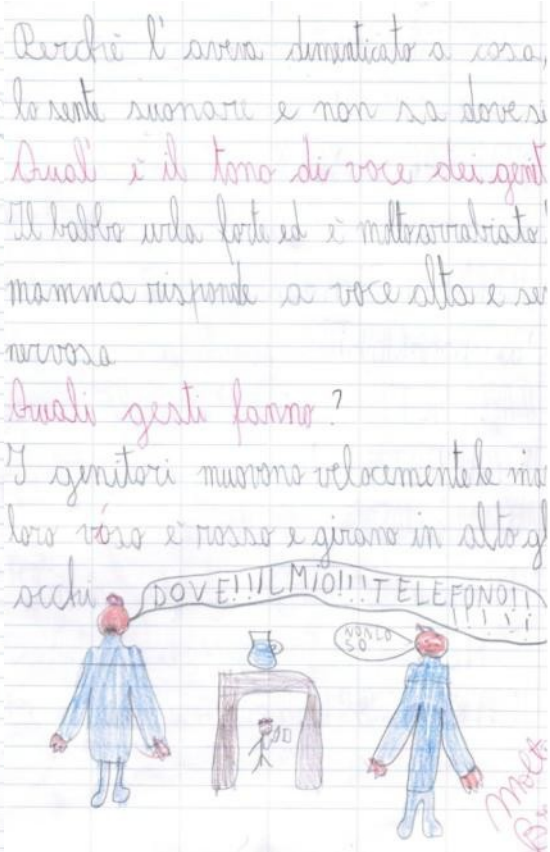 Perchè l'aveva dimenticato a casa,
lo sente suonare e non sa dove si
Quali è il tono di voce dei genit
Il babbo urla forte ed è molto arrabiato
mamma risponde a voce alta e se
nervosa
Quali gesti fanno?
I genitori muovono velocemente le ma
loro viso è rosso e girano in alto gl
occhi
DOVE!!!IL MIO!!!TELEFONO!!
!!!!!
NON LO
SO
Molt
Br